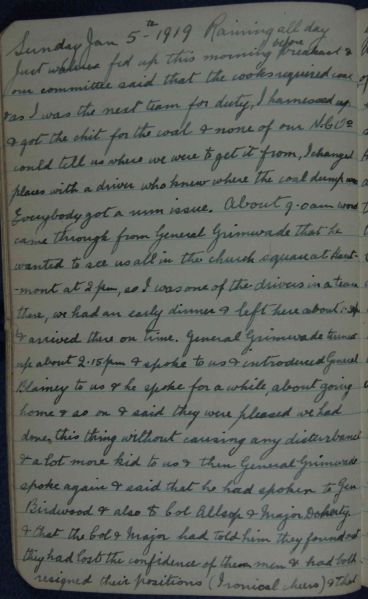 Sunday Jan 5th 1919 Raining all day
Just as we were fed up this morning before breakfast &
our committee said that the cooks required coal
& as I was the next team for duty, I harnessed up
& got the chit for the coal & none of our N.C.Os
could tell us where we were to get it from, I changed
places with a driver who knew where the coal dump was
Everybody got a rum issue. About 9.0am word
came through from General Grimwade that he
wanted to see us all in the church square at
-mont at 2 pm, so I was one of the drivers in a team
there, we had an early dinner & left here about
& arrived there on time. General Grimwade turned
up about 2.15pm & spoke to us & introduced General
Blamey to us & he spoke for a while, about going
home & so on & said they were pleased we had
done this thing without causing any disturbance
& a lot more kid to us & then General Grimwade
spoke again & said that he had spoken to Gen
Birdwood & also to Col Allsop & Major Doherty
& that the Col & Major had told him they found out
they had lost the confidence of their men & had both
resigned their positions (Ironical cheers) & that